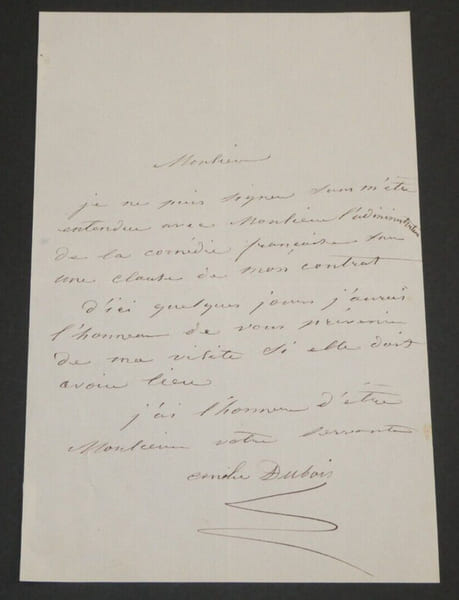 Monsieur
je ne puis signer sans m'être
entendue avec Monsieur l'administrateur
de la comédie française sur
une clause de mon contrat
d'ici quelques jours j'aurai
l'honneur de vous prévenir
de ma visite si elle doit
avoir lieu
j'ai l'honneur d'être
Monsieur votre servante
emilie Dubois